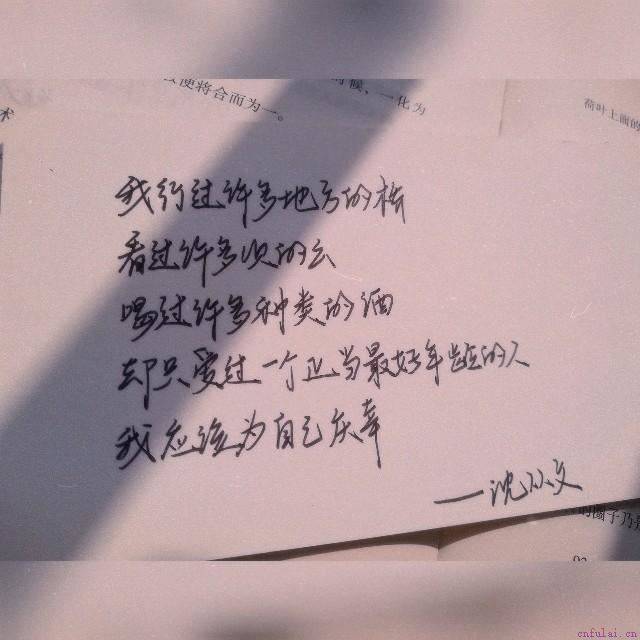 便将合而为一。
候、一化为
荷叶上面的
术
我行过许多地方的桥
看过许多次的云
喝过许多种类的酒
却只爱过一个正当最好年龄的人
我应该为自己庆幸
——沈从文
的圈子乃
cnfulai.cn